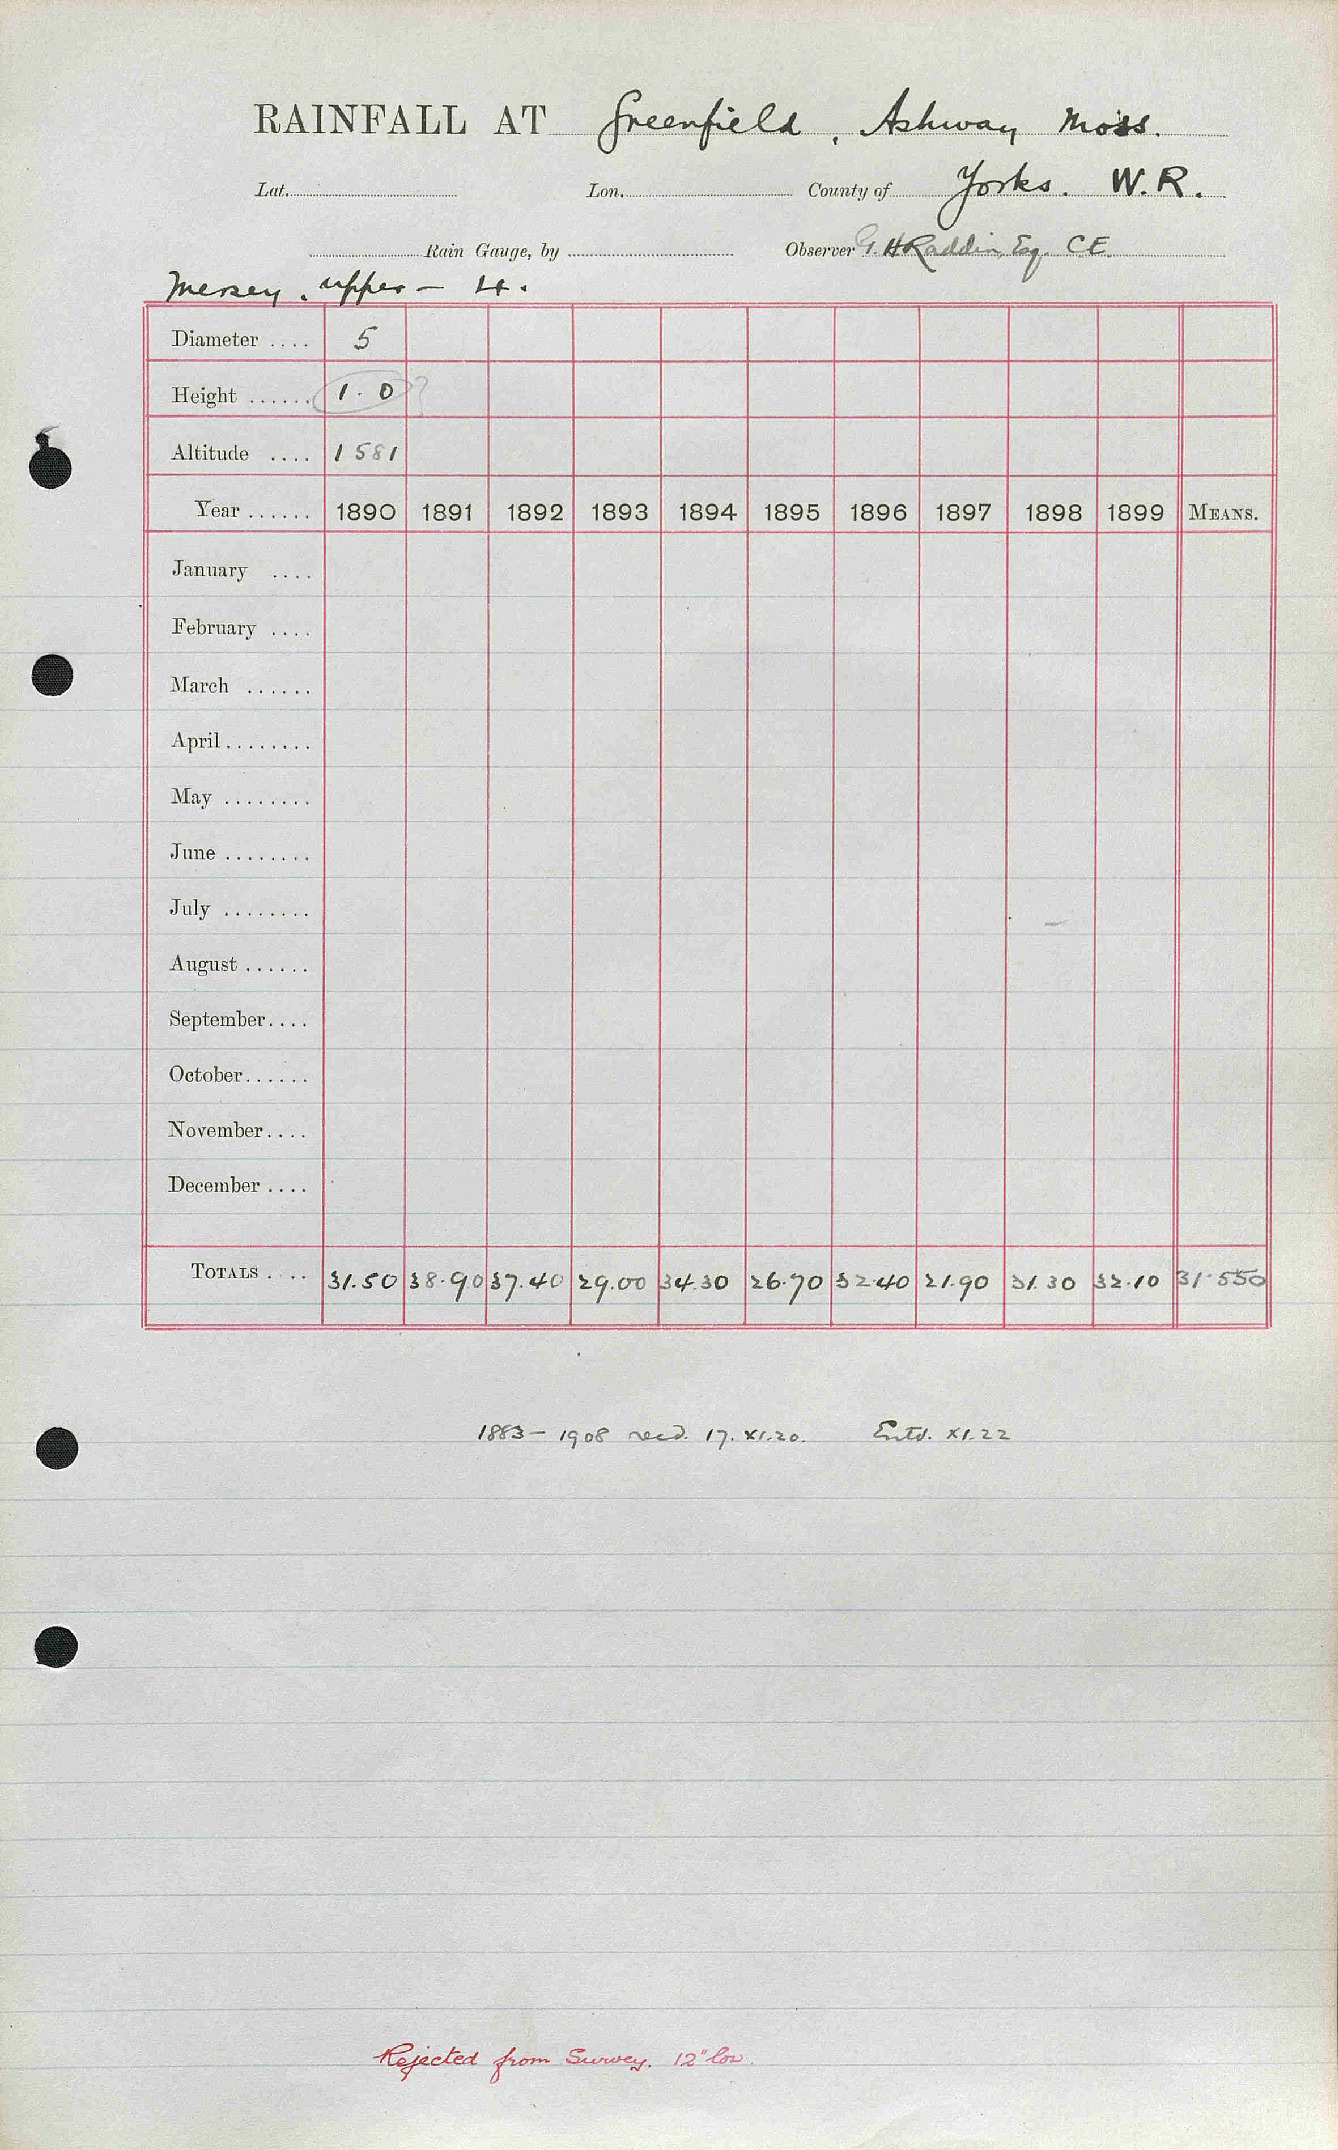 RAINFALL AT Greenfield, Ashway Moss.
Lat. Lon. County of Yorks. W.R.
Rain Gauge, by Observer G. H Raddin, Esq. C E.
Mersey. upper - 4.
Diameter .... 5
Height ...... 1.0 ?
Altitude .... 1581
Year ...... 1890 1891 1892 1893 1894 1895 1896 1897 1898 1899 MEANS.
January ....
February ....
March ......
April ........
May ........
June ........
July ........
August ......
September....
October......
November....
December ....
TOTALS .... 31.50 38.90 37.40 29.00 34.30 26.70 32.40 21.90 31.30 32.10 31.550
1883 - 1908 recd. 17.XI.20. Entd. XI.22
Rejected from Survey. 12" low.